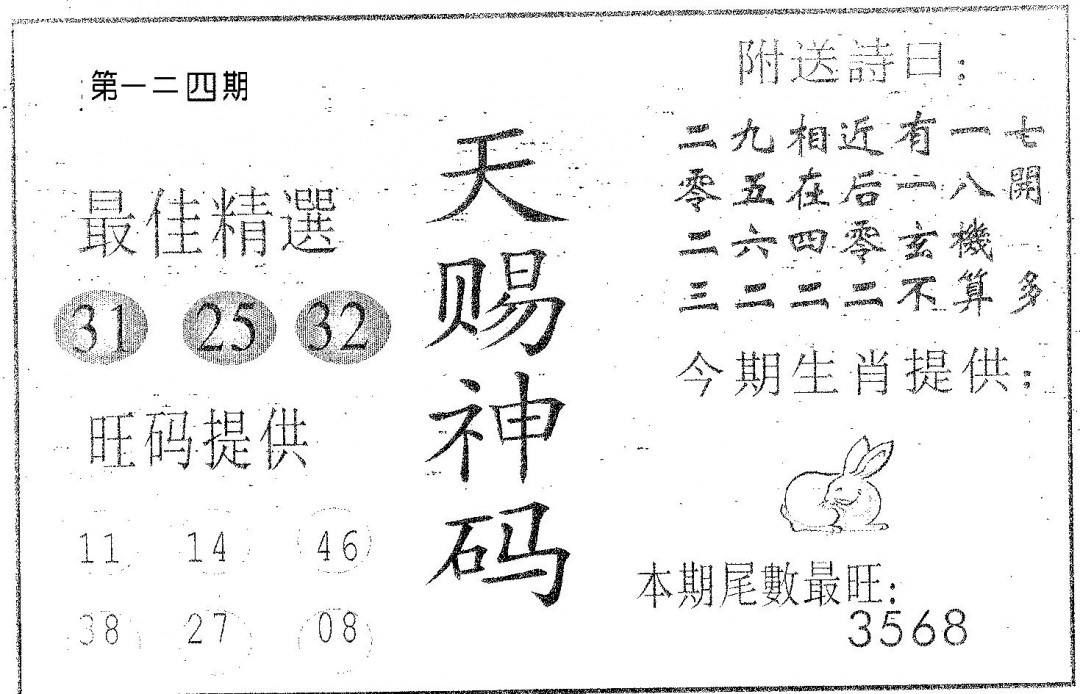 第一二四期
最佳精選
31 25 32
旺码提供
11 14 46
38 27 08
天赐神码
附送詩曰：
二九相近有一七
零五在后一八開
二六四零玄機
三二二二不算多
今期生肖提供：
本期尾數最旺：
3568